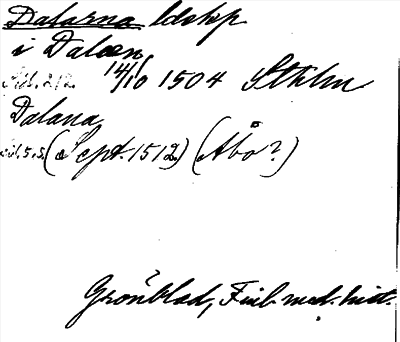 Dalarna ldskp
i Dalaen
14/10 1504 Sthlm
Dalana
(Sept. 1512) (Åbo?)
Grönblad, Finl. med. hist.